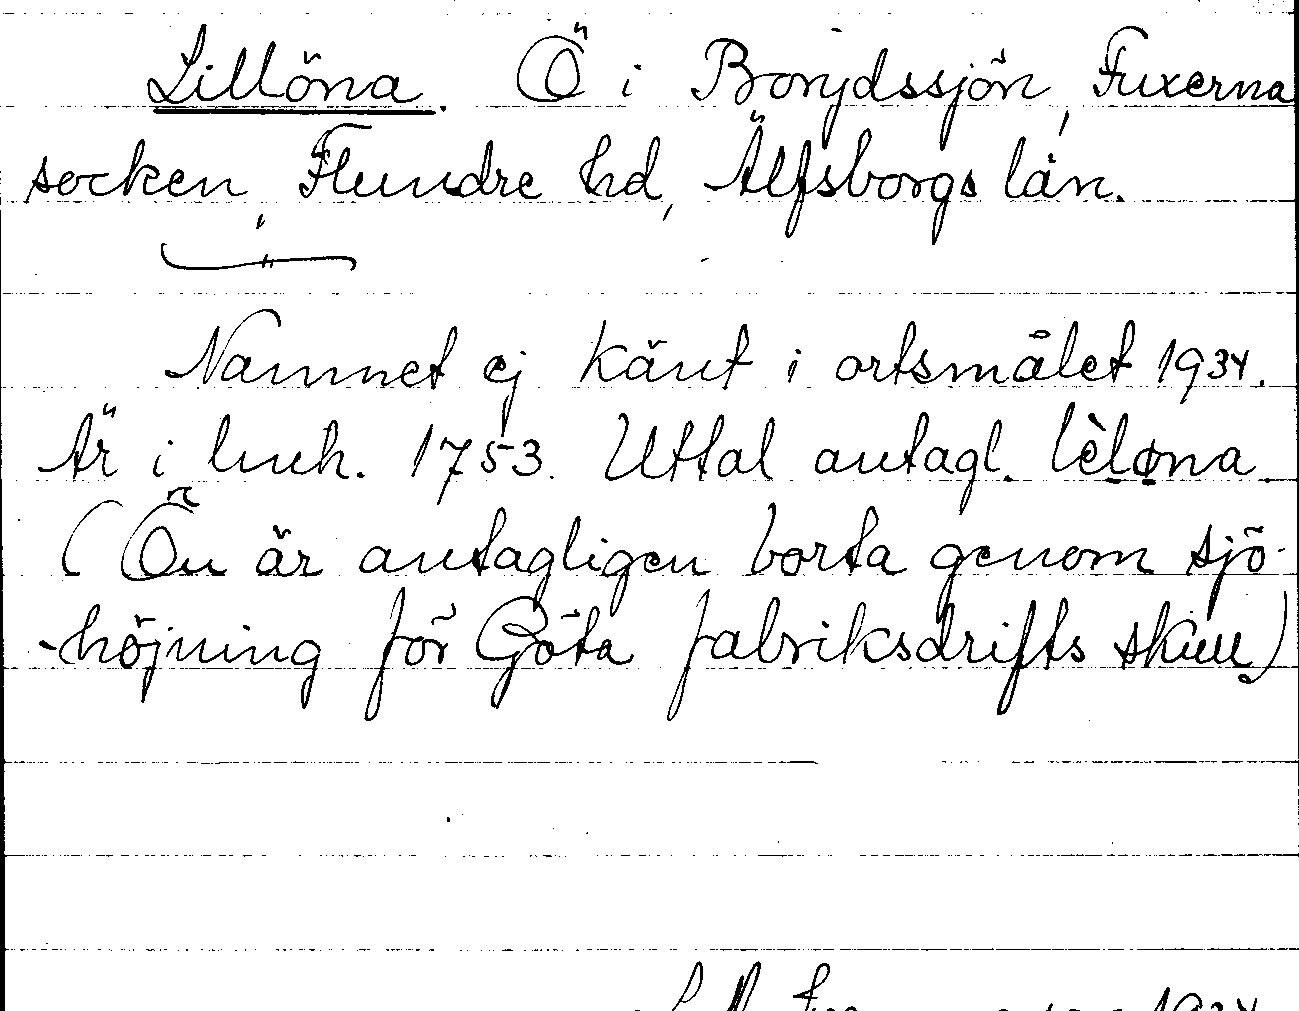 Lillöna. Ö i Bonjdssjön, Fuxerna
socken, Flundre hd, Älfsborgs län.
Namnet ej känt i ortsmålet 1934.
Är i luch. 1753. Uttal antagl. lèløna.
(Ön är antagligen borta genom sjö-
-höjning för Göta fabriksdrifts skull)
1934